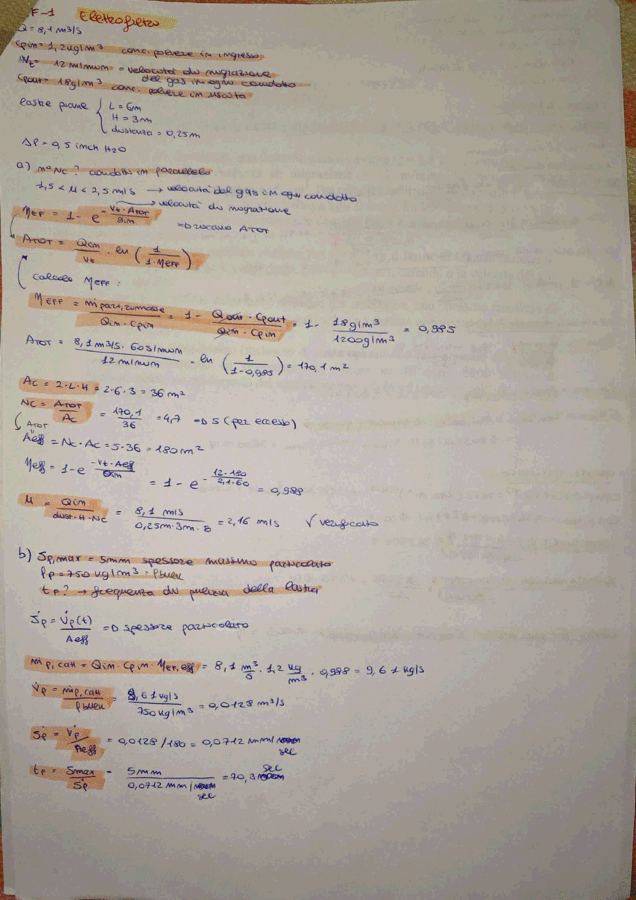 F-1 Elettrofiltro
Q = 8,1 m³/s
Cpin = 1,2 ug/m³ conc. polvere in ingresso
Vt = 12 m/mum = velocità di migrazione
del gas in ogni condotto
Cpout = 18g/m³ conc. polvere in uscita
lastre piane { L = 6m
H = 3m
distanza = 0,25m
ΔP = 0,5 inch H2O
a) n° Nc? condotti in parallelo
1,5 < u < 2,5 m/s → velocità del gas in ogni condotto
→ velocità di migrazione
ηEFF = 1 - e^(-Vt·ATOT/Qin) => ricavo ATOT
ATOT = Qin/Vt · ln (1/(1-ηEFF))
calcolo ηEFF:
ηEFF = mi part, rimosse/(Qin·Cpin) = 1 - Qout·Cpout/(Qin·Cpin) = 1 - 18g/m³/1200g/m³ = 0,985
ATOT = 8,1 m³/s · 60s/mum/12 m/mum · ln (1/(1-0,985)) = 170,1 m²
Ac = 2·L·H = 2·6·3 = 36 m²
Nc = ATOT/Ac = 170,1/36 = 4,7 => 5 (per eccesso)
ATOT
Aeff = Nc·Ac = 5·36 = 180 m²
ηeff = 1 - e^(-Vt·Aeff/Qin) = 1 - e^(-12·180/8,1·60) = 0,988
u = Qin/(dist·H·Nc) = 8,1 m/s/(0,25m·3m·5) = 2,16 m/s √ verificato
b) Sp,max = 5mm spessore massimo particolato
ρp = 750 kg/m³ = ρbulk
tp? → frequenza di pulizia della lastra
Ṡp = V̇p(t)/Aeff => spessore particolato
ṁp,catt = Qin·Cpin·ηEF,eff = 8,1 m³/s · 1,2 kg/m³ · 0,988 = 9,61 kg/s
V̇p = ṁp,catt/ρbulk = 9,61 kg/s/750 kg/m³ = 0,0128 m³/s
Ṡp = V̇p/Aeff = 0,0128/180 = 0,0712 mm/sec
tp = Smax/Ṡp = 5mm/0,0712 mm/sec = 70,3 sec